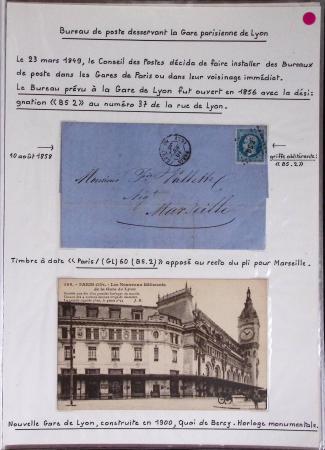 Bureau de poste desservant la Gare parisienne de Lyon
Le 23 mars 1849, le Conseil des Postes décida de faire installer des Bureaux
de poste dans les Gares de Paris ou dans leur voisinage immédiat.
Le Bureau prévu à la Gare de Lyon fut ouvert en 1856 avec la dési-
gnation «BS 2» au numéro 37 de la rue de Lyon.
10 août 1858
griffe oblitérante:
«BS.2»
Monsieur
Marseille
Timbre à date «Paris/(GL) 60 (BS.2)» apposé au recto du pli pour Marseille.
PARIS (XIIe). - Les Nouveaux Bâtiments
de la Gare de Lyon
Nouvelle Gare de Lyon, construite en 1900, Quai de Bercy. Horloge monumentale.